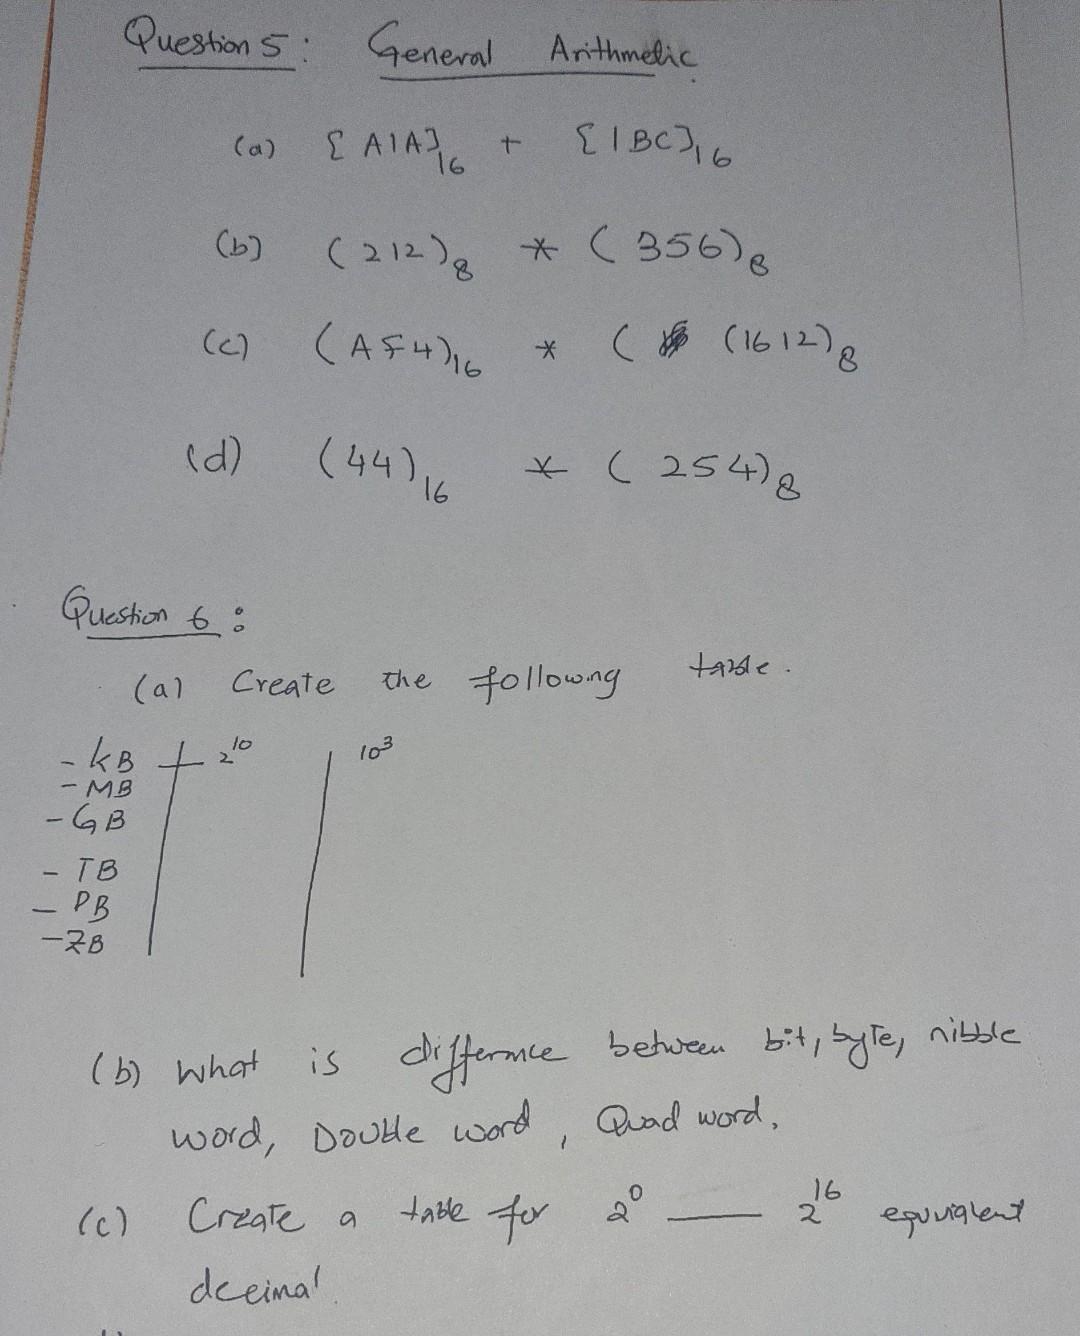 Question 5: General Arithmetic
(a) [A1A]16 + [1BC]16
(b) (212)8 * (356)8
(c) (AF4)16 * ( (1612)8
(d) (44)16 * (254)8
Question 6:
(a) Create the following table.
- KB 2^10 10^3
- MB
- GB
- TB
- PB
- ZB
(b) What is differnce between bit, byte, nibble
word, Double word, Quad word.
(c) Create a table for 2^0 — 2^16 equvialent
deeimal.